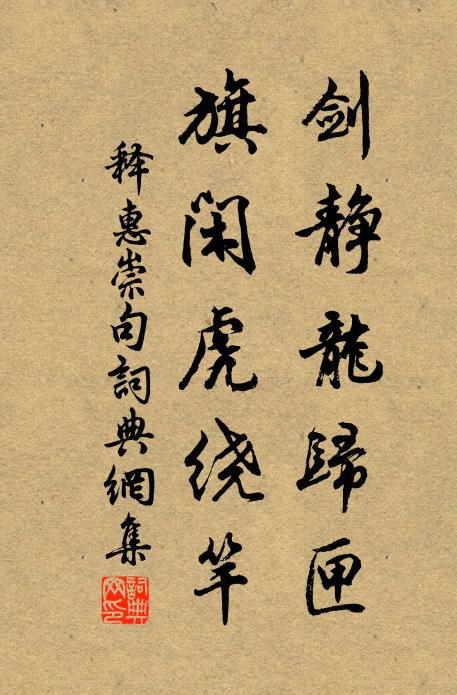 剑静龍歸匣
旗闲虎绕竿
释惠崇句詞典網集
詞典网印